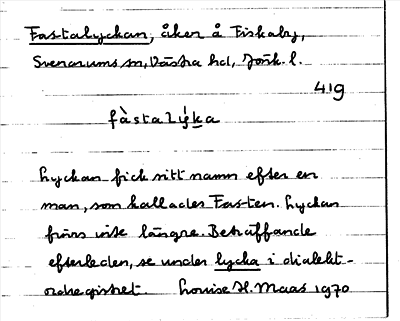 Fastalyckan, åker å Fiskaby,
Svenarums sn, Västra hd, Jönk. l.
419
fàstalỳka
Lyckan fick sitt namn efter en
man, som kallades Fasten. Lyckan
finns inte längre. Beträffande
efterleden, se under lycka i dialekt-
ordregistret. Louise H. Maas 1970